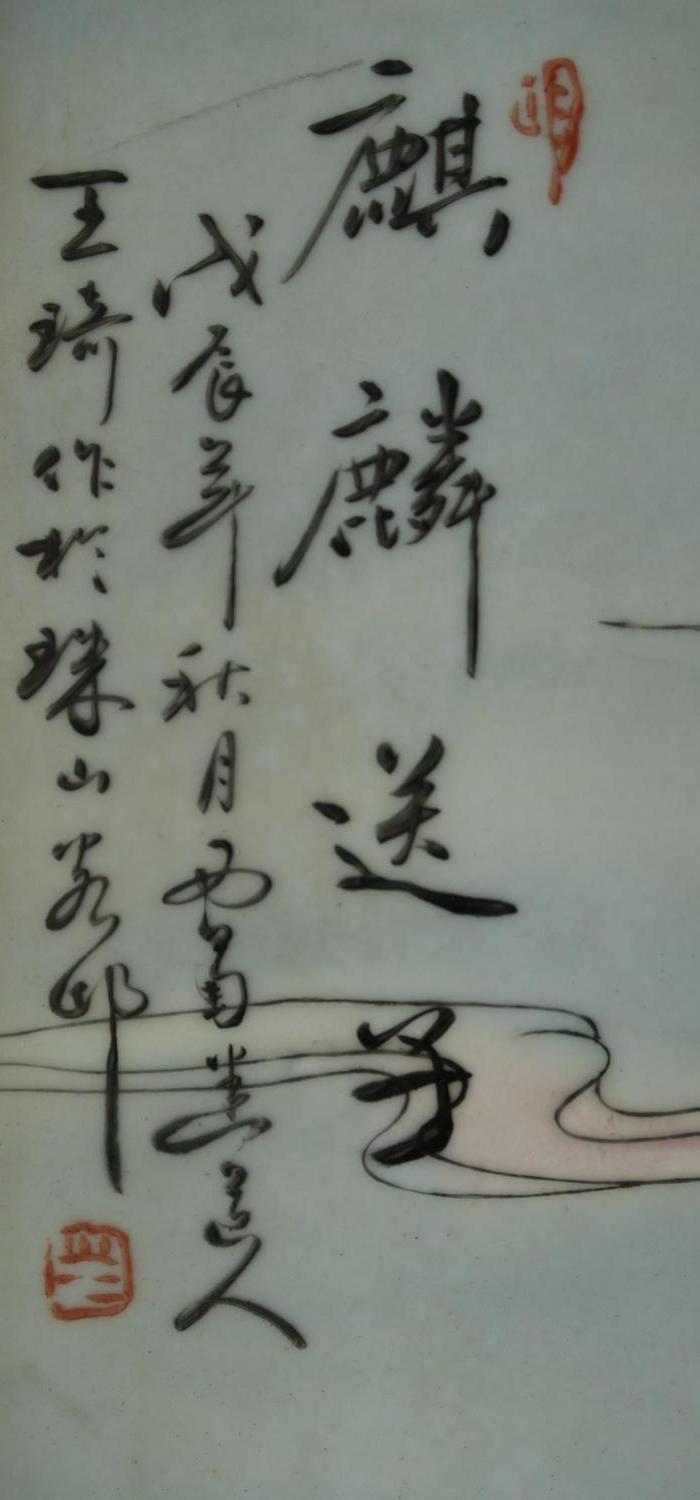 麒麟送子
戊辰年秋月西匋迷道人
王琦作於珠山客邸